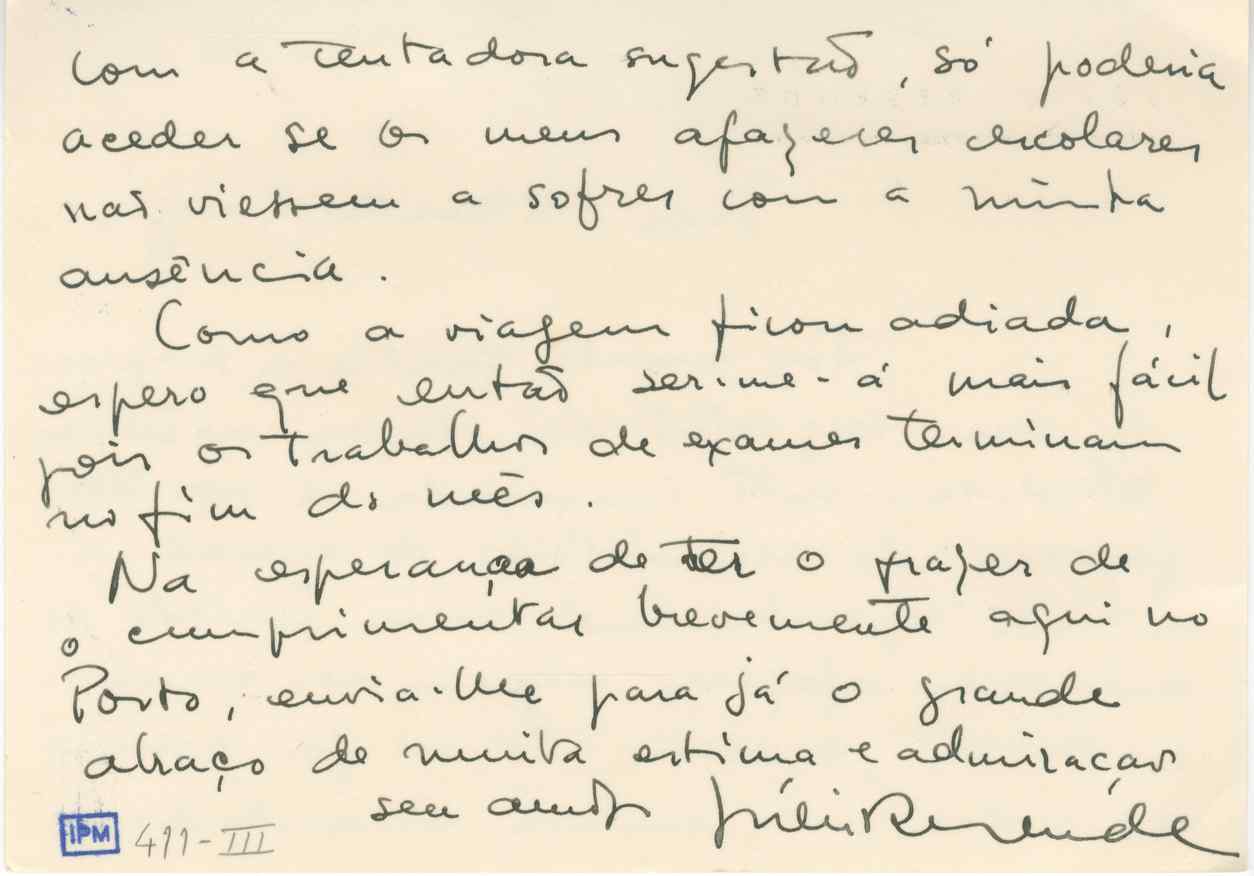 com a tentadora sugestão, só poderia
aceder se os meus afazeres escolares
não viessem a sofrer com a minha
ausência.
Como a viagem ficou adiada,
espero que então ser-me-á mais fácil
pois os trabalhos de exames terminam
no fim do mês.
Na esperança de ter o prazer de
o cumprimentar brevemente aqui no
Porto, envia-lhe para já o grande
abraço de muita estima e admiração
seu amigo Júlio Resende
IPM 411-III